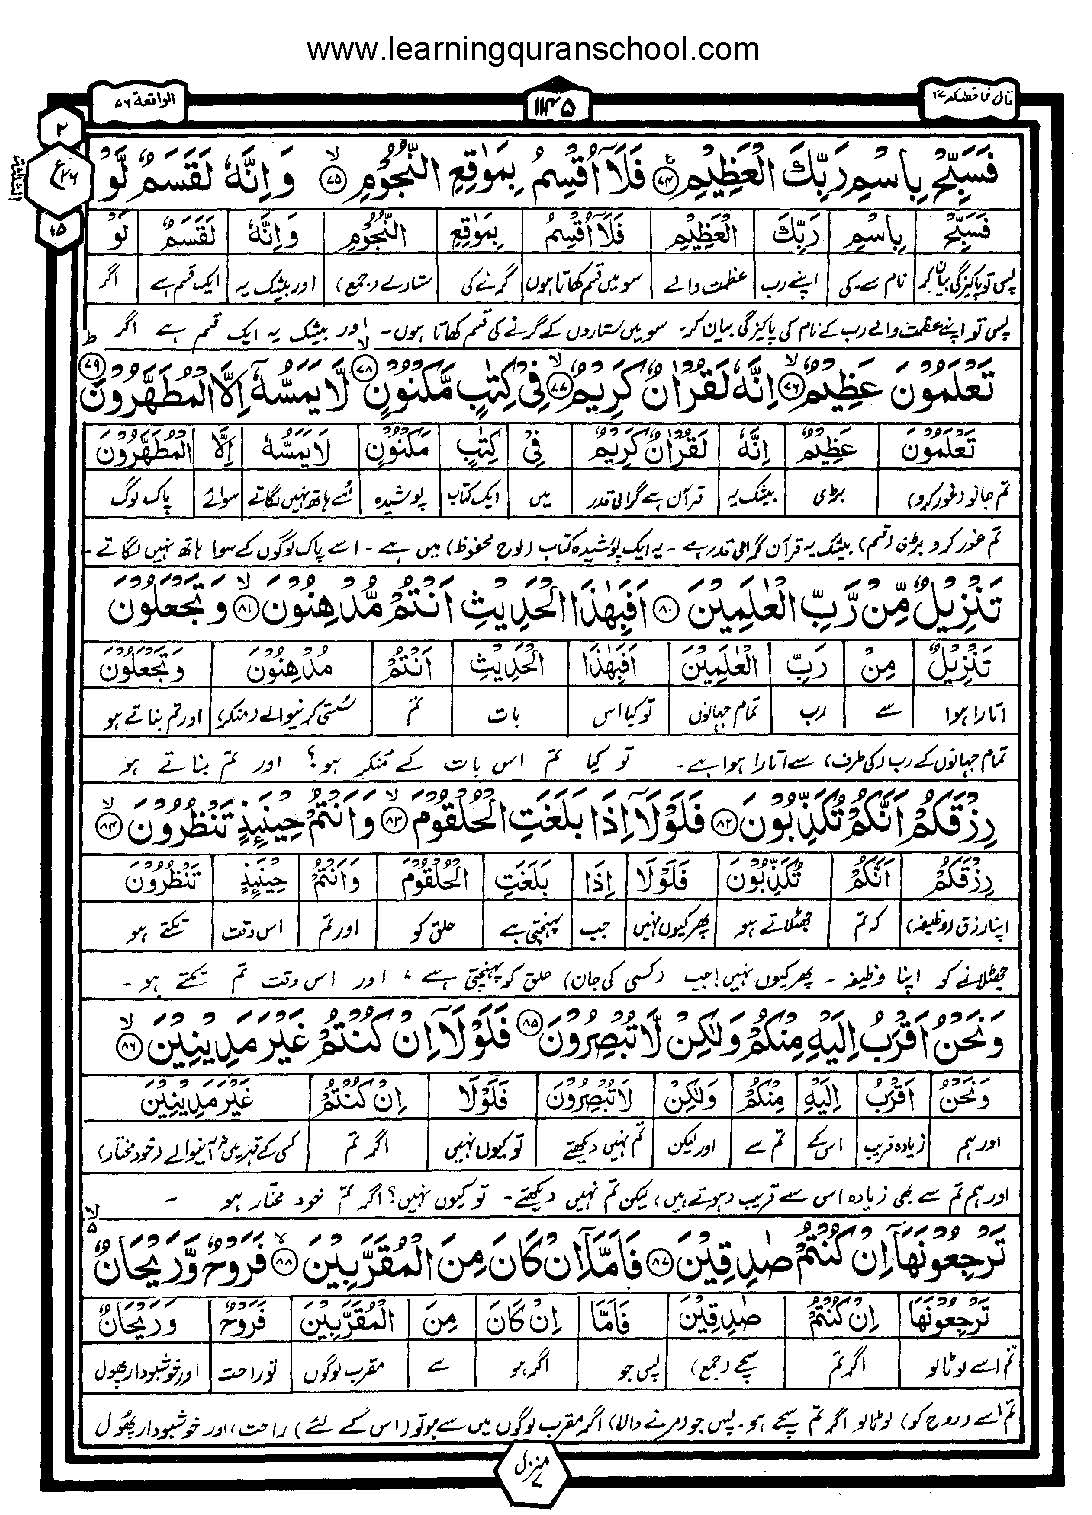 www.learningquranschool.com
قال فما خطبكم ٢٧
١١٤٥
الواقعة ٥٦
٢
ع
١٥
فَسَبِّحْ بِاسْمِ رَبِّكَ الْعَظِيْمِ ﴿٧٤﴾ فَلَآ اُقْسِمُ بِمَوٰقِعِ النُّجُوْمِ ﴿٧٥﴾ وَاِنَّهٗ لَقَسَمٌ لَّوْ
فَسَبِّحْ بِاسْمِ رَبِّكَ الْعَظِيْمِ فَلَآ اُقْسِمُ بِمَوٰقِعِ النُّجُوْمِ وَاِنَّهٗ لَقَسَمٌ لَوْ
پس تو پاکیزگی بیان کر نام سے۔کی اپنے رب عظمت والے سو میں قسم کھاتا ہوں گرنے کی ستارے (جمع) اور بیشک یہ ایک قسم ہے اگر
پس تو اپنے عظمت والے رب کے نام کی پاکیزگی بیان کر۔ سو میں ستاروں کے گرنے کی قسم کھاتا ہوں۔ اور بیشک یہ ایک قسم ہے اگر
تَعْلَمُوْنَ عَظِيْمٌ ﴿٧٦﴾ اِنَّهٗ لَقُرْاٰنٌ كَرِيْمٌ ﴿٧٧﴾ فِيْ كِتٰبٍ مَّكْنُوْنٍ ﴿٧٨﴾ لَّا يَمَسُّهٗٓ اِلَّا الْمُطَهَّرُوْنَ ﴿٧٩﴾
تَعْلَمُوْنَ عَظِيْمٌ اِنَّهٗ لَقُرْاٰنٌ كَرِيْمٌ فِيْ كِتٰبٍ مَكْنُوْنٍ لَا يَمَسُّهٗ اِلَّا الْمُطَهَّرُوْنَ
تم جانو (غور کرو) بڑی بیشک یہ قرآن ہے گرامی قدر میں ایک کتاب پوشیدہ اسے ہاتھ نہیں لگاتے سوائے پاک لوگ
تم غور کرو بڑی (قسم) بیشک یہ قرآن گرامی قدر ہے۔ یہ ایک پوشیدہ کتاب (لوح محفوظ) میں ہے۔ اسے پاک لوگوں کے سوا ہاتھ نہیں لگاتے۔
تَنْزِيْلٌ مِّنْ رَّبِّ الْعٰلَمِيْنَ ﴿٨٠﴾ اَفَبِهٰذَا الْحَدِيْثِ اَنْتُمْ مُّدْهِنُوْنَ ﴿٨١﴾ وَتَجْعَلُوْنَ
تَنْزِيْلٌ مِنْ رَبِّ الْعٰلَمِيْنَ اَفَبِهٰذَا الْحَدِيْثِ اَنْتُمْ مُدْهِنُوْنَ وَتَجْعَلُوْنَ
اتارا ہوا سے رب تمام جہانوں تو کیا اس بات تم سستی کرنیوالے (منکر) اور تم بناتے ہو
تمام جہانوں کے رب (کی طرف) سے اتارا ہوا ہے۔ تو کیا تم اس بات کے منکر ہو؟ اور تم بناتے ہو
رِزْقَكُمْ اَنَّكُمْ تُكَذِّبُوْنَ ﴿٨٢﴾ فَلَوْلَآ اِذَا بَلَغَتِ الْحُلْقُوْمَ ﴿٨٣﴾ وَاَنْتُمْ حِيْنَئِذٍ تَنْظُرُوْنَ ﴿٨٤﴾
رِزْقَكُمْ اَنَّكُمْ تُكَذِّبُوْنَ فَلَوْلَا اِذَا بَلَغَتِ الْحُلْقُوْمَ وَاَنْتُمْ حِيْنَئِذٍ تَنْظُرُوْنَ
اپنا رزق (وظیفہ) کہ تم جھٹلاتے ہو پھر کیوں نہیں جب پہنچتی ہے حلق کو اور تم اس وقت تکتے ہو
جھٹلانے کو اپنا وظیفہ۔ پھر کیوں نہیں! جب (کسی کی جان) حلق کو پہنچتی ہے، اور اس وقت تم تکتے ہو۔
وَنَحْنُ اَقْرَبُ اِلَيْهِ مِنْكُمْ وَلٰكِنْ لَّا تُبْصِرُوْنَ ﴿٨٥﴾ فَلَوْلَآ اِنْ كُنْتُمْ غَيْرَ مَدِيْنِيْنَ ﴿٨٦﴾
وَنَحْنُ اَقْرَبُ اِلَيْهِ مِنْكُمْ وَلٰكِنْ لَا تُبْصِرُوْنَ فَلَوْلَا اِنْ كُنْتُمْ غَيْرَ مَدِيْنِيْنَ
اور ہم زیادہ قریب اس کے تم سے اور لیکن تم نہیں دیکھتے تو کیوں نہیں اگر تم کسی کے قہر میں آنیوالے (خود مختار)
اور ہم تم سے بھی زیادہ اس سے قریب (ہوتے ہیں) لیکن تم نہیں دیکھتے۔ تو کیوں نہیں؟ اگر تم خود مختار ہو ۔
تَرْجِعُوْنَهَآ اِنْ كُنْتُمْ صٰدِقِيْنَ ﴿٨٧﴾ فَاَمَّآ اِنْ كَانَ مِنَ الْمُقَرَّبِيْنَ ﴿٨٨﴾ فَرَوْحٌ وَّرَيْحَانٌ
تَرْجِعُوْنَهَا اِنْ كُنْتُمْ صٰدِقِيْنَ فَاَمَّا اِنْ كَانَ مِنَ الْمُقَرَّبِيْنَ فَرَوْحٌ وَرَيْحَانٌ
تم اسے لوٹا لو اگر تم سچے (جمع) پس جو اگر ہو سے مقرب لوگوں تو راحت اور خوشبودار پھول
تم اسے (روح کو) لوٹا لو اگر تم سچے ہو۔ پس جو (مرنے والا) اگر مقرب لوگوں میں سے ہو تو (اس کے لئے) راحت، اور خوشبودار پھول
منزل ٧